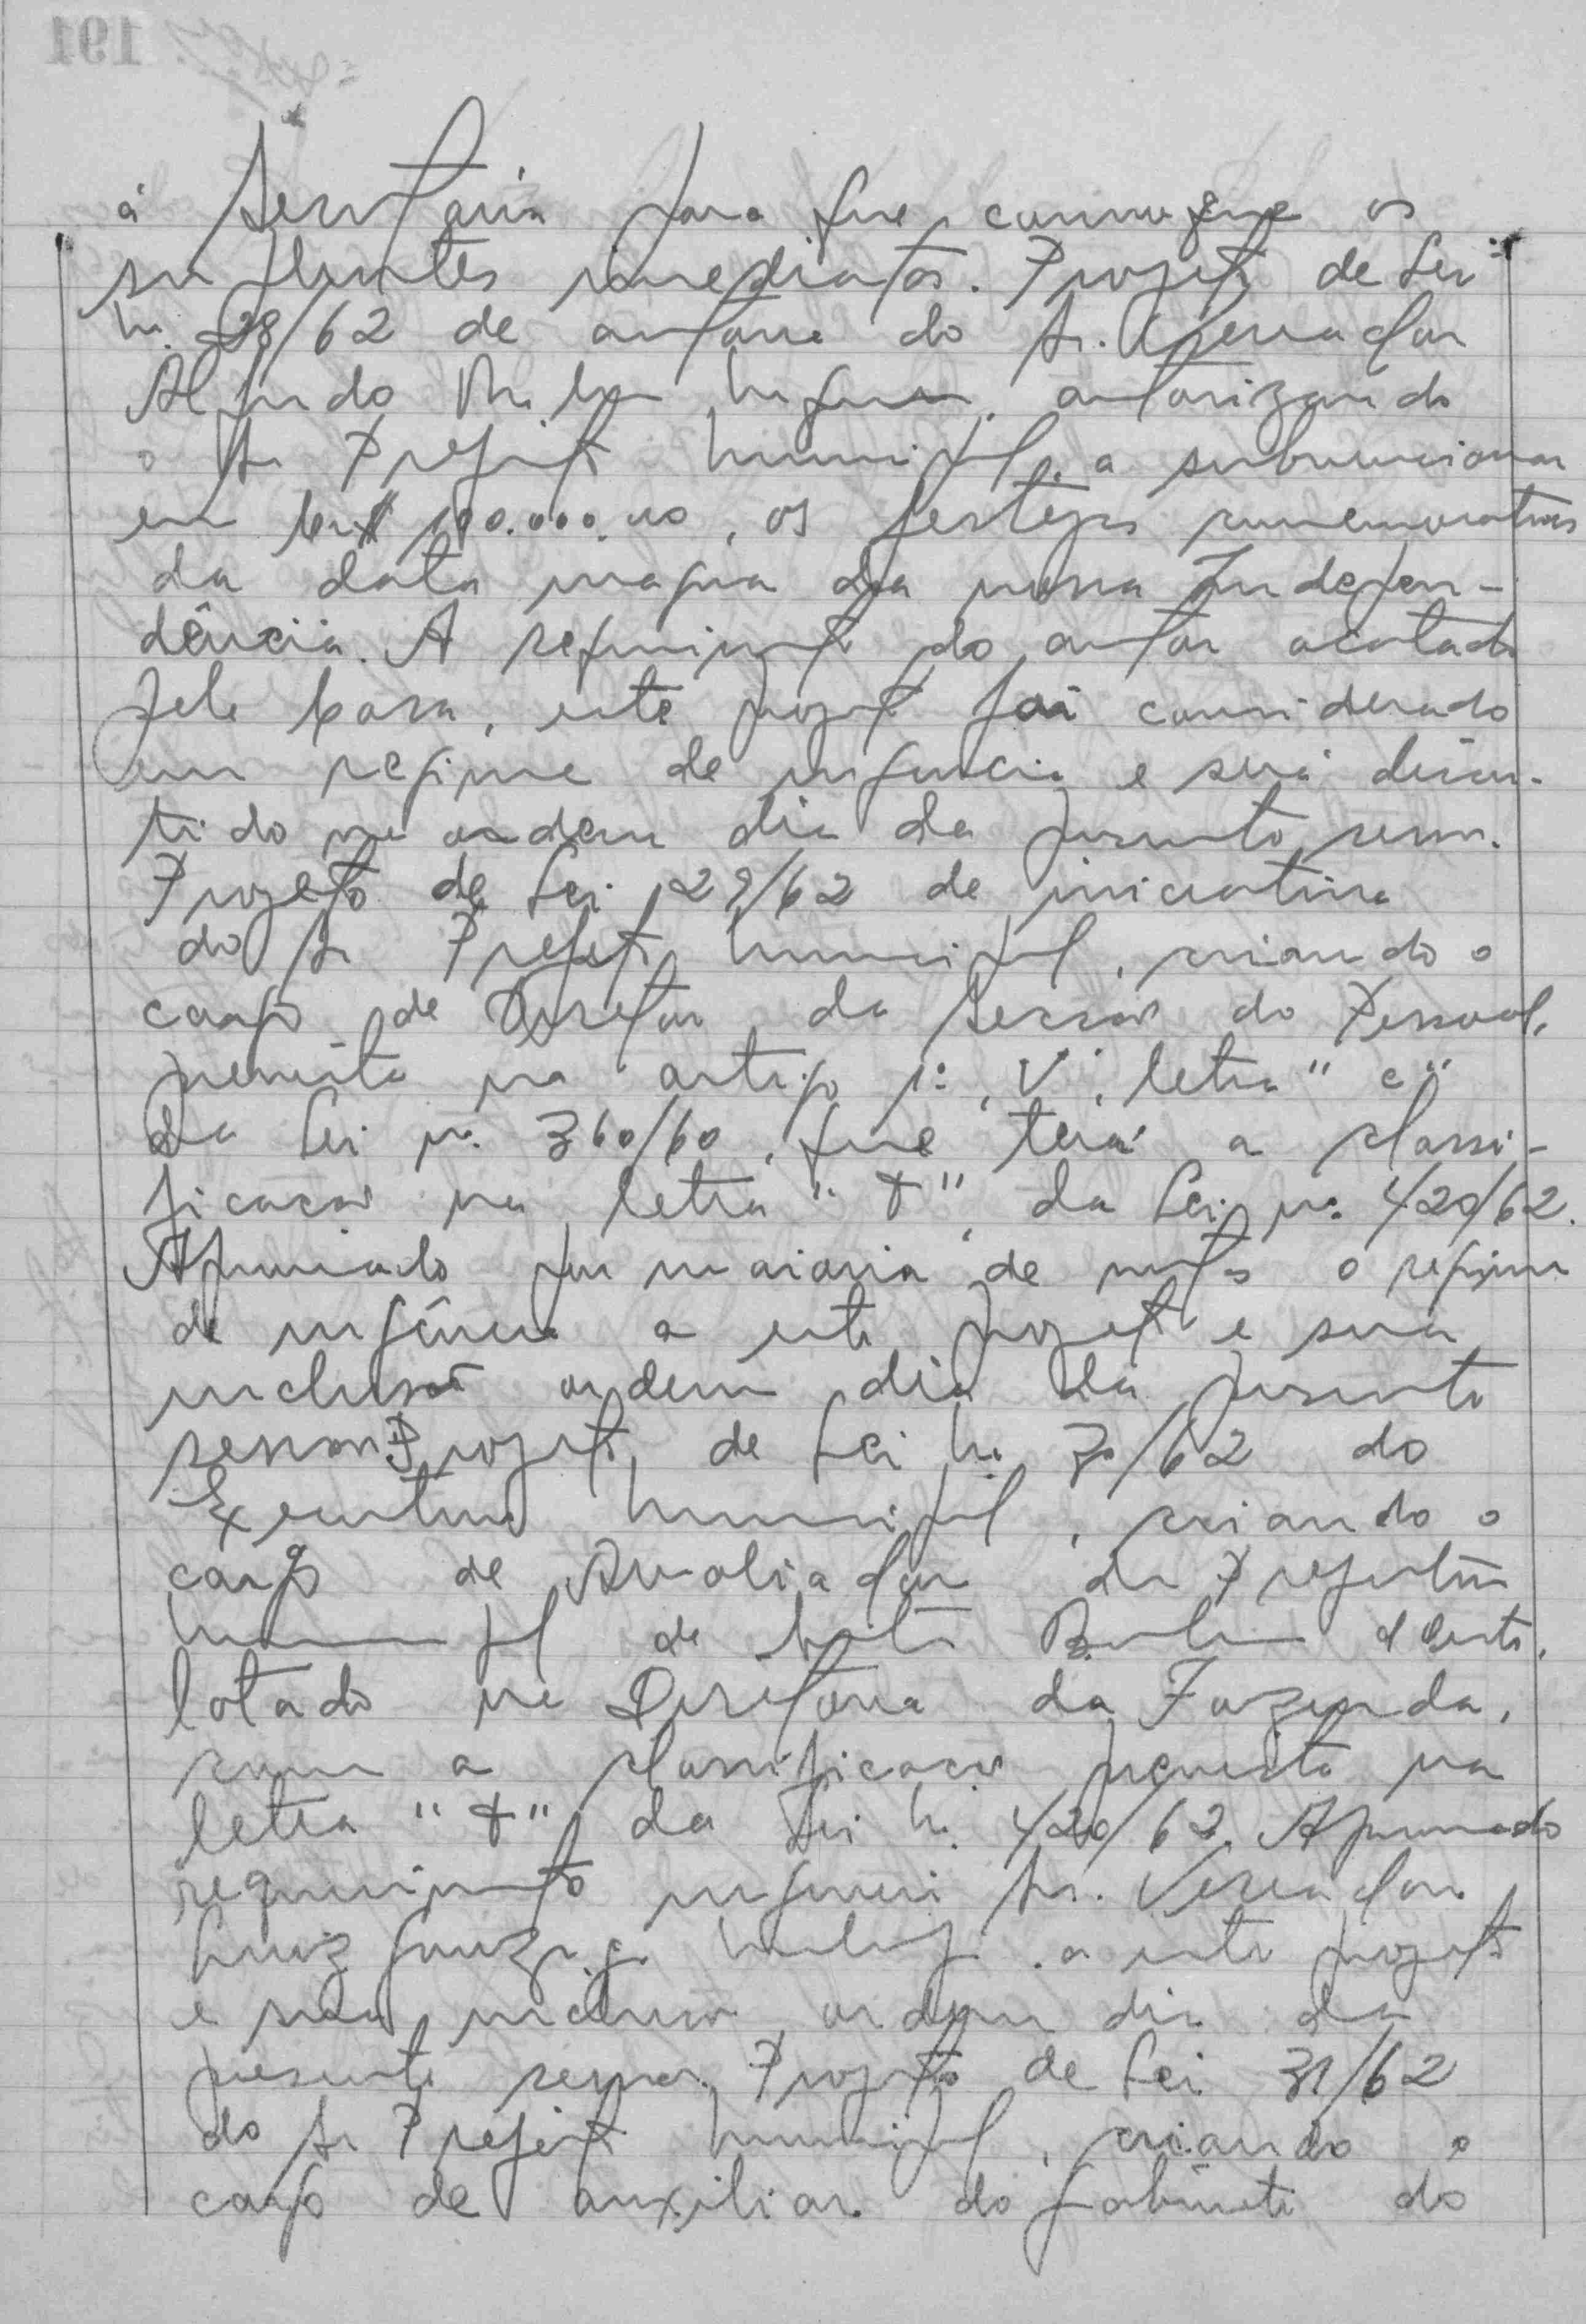 à Secretaria para que convoque os
suplentes imediatos. Projeto de Lei
n. 28/62 de autoria do Sr. Vereador
Alfredo autorizando
o Sr Prefeito Municipal, a subvencionar
em Cr$ 100.000,00, os festejos comemorativos
da data magna da nossa Indepen-
dência. A requerimento do autor acatado
pela Casa, este projeto foi considerado
em regime de urgencia e será discu-
tido na ordem dia da presente sessão.
Projeto de Lei 29/62 de iniciativa
do Sr Prefeito Municipal, criando o
cargo de Diretor da Secção do Pessoal,
prevista no artigo 1º, V, letra "c"
da Lei nº 360/60, que terá a classi-
ficação na letra "T", da Lei nº 420/62.
Aprovado por maioria de votos o regime
de urgência a este projeto e sua
inclusão ordem dia da presente
sessão. Projeto de Lei n. 30/62 do
Executivo Municipal, criando o
cargo de Avaliador da Prefeitura
Municipal de Santa Barbara d'Oeste,
lotado na Diretoria da Fazenda,
com a classificação prevista na
letra "T" da Lei n. 420/62. Aprovado
requerimento urgencia Sr. Vereador
Luiz a este projeto
e sua inclusão ordem dia da
presente sessão. Projeto de Lei 31/62
do Sr Prefeito Municipal, criando o
cargo de auxiliar do gabinete do